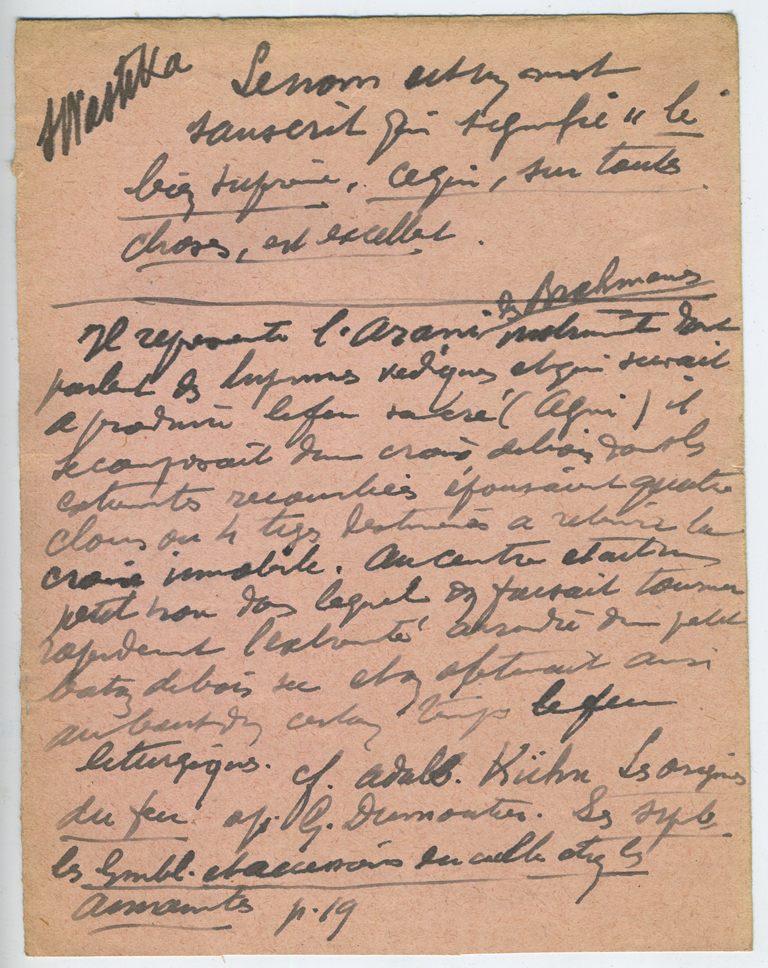 Swastika
Le nom est un mot
sanscrit qui signifie "le
bien suprême, ce qui, sur toutes
choses, est excellent.
des Brahmanes
Il represente l'Arani instrument dont
parlent les hymnes vediques et qui servait
a produire le feu sacré (Agni) il
se composait d'une croix de bois dont les
extremités recourbées épousaient quatre
clous ou 4 tiges destinées a retenir la
croix immobile. Au centre etait un
petit trou dans lequel on faisait tourner
rapidement l'extremité d'un petit
baton de bois sec et on obtenait ainsi
au bout d'un certain temps le feu
liturgique. cf. Adalb. Kühn Les origines
du feu ap. G. Dumoutier. Les symboles
les Embl. et accessoires du culte chez les
Annamites p. 19